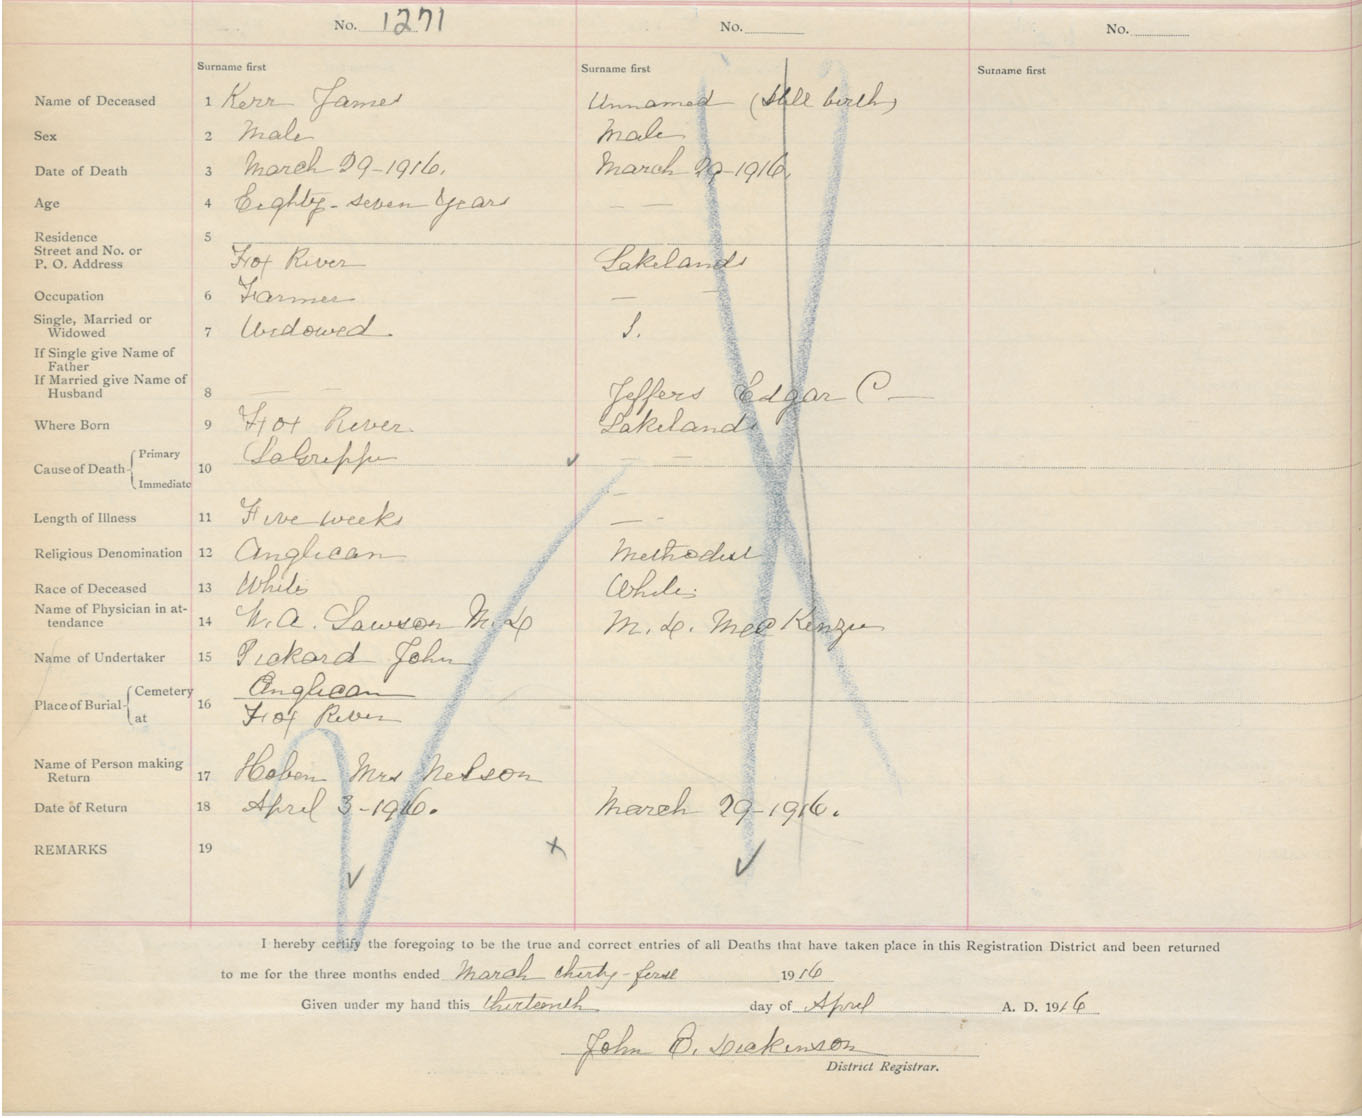 No. 1271 No. No.
Surname first Surname first Surname first
Name of Deceased 1 Kerr James Unnamed (Still birth)
Sex 2 Male Male
Date of Death 3 March 29-1916. March 29-1916.
Age 4 Eighty-seven Years — —
Residence 5
Street and No. or
P. O. Address Fox River Lakelands
Occupation 6 Farmer — —
Single, Married or
Widowed 7 Widowed S.
If Single give Name of
Father
If Married give Name of
Husband 8 — — Jeffers Edgar C—
Where Born 9 Fox River Lakelands
Cause of Death Primary LaGrippe — —
10
Immediate —
Length of Illness 11 Five weeks — -
Religious Denomination 12 Anglican Methodist
Race of Deceased 13 White White
Name of Physician in at-
tendance 14 W. A. Lawson M. D. M. D. MacKenzie
Name of Undertaker 15 Pickard John
Place of Burial Cemetery Anglican
16
at Fox River
Name of Person making
Return 17 Hoben Mrs Nelson
Date of Return 18 April 3-1916. March 29-1916.
REMARKS 19
I hereby certify the foregoing to be the true and correct entries of all Deaths that have taken place in this Registration District and been returned
to me for the three months ended March thirty-first 1916
Given under my hand this thirteenth day of April A. D. 1916
John B. Dickinson
District Registrar.